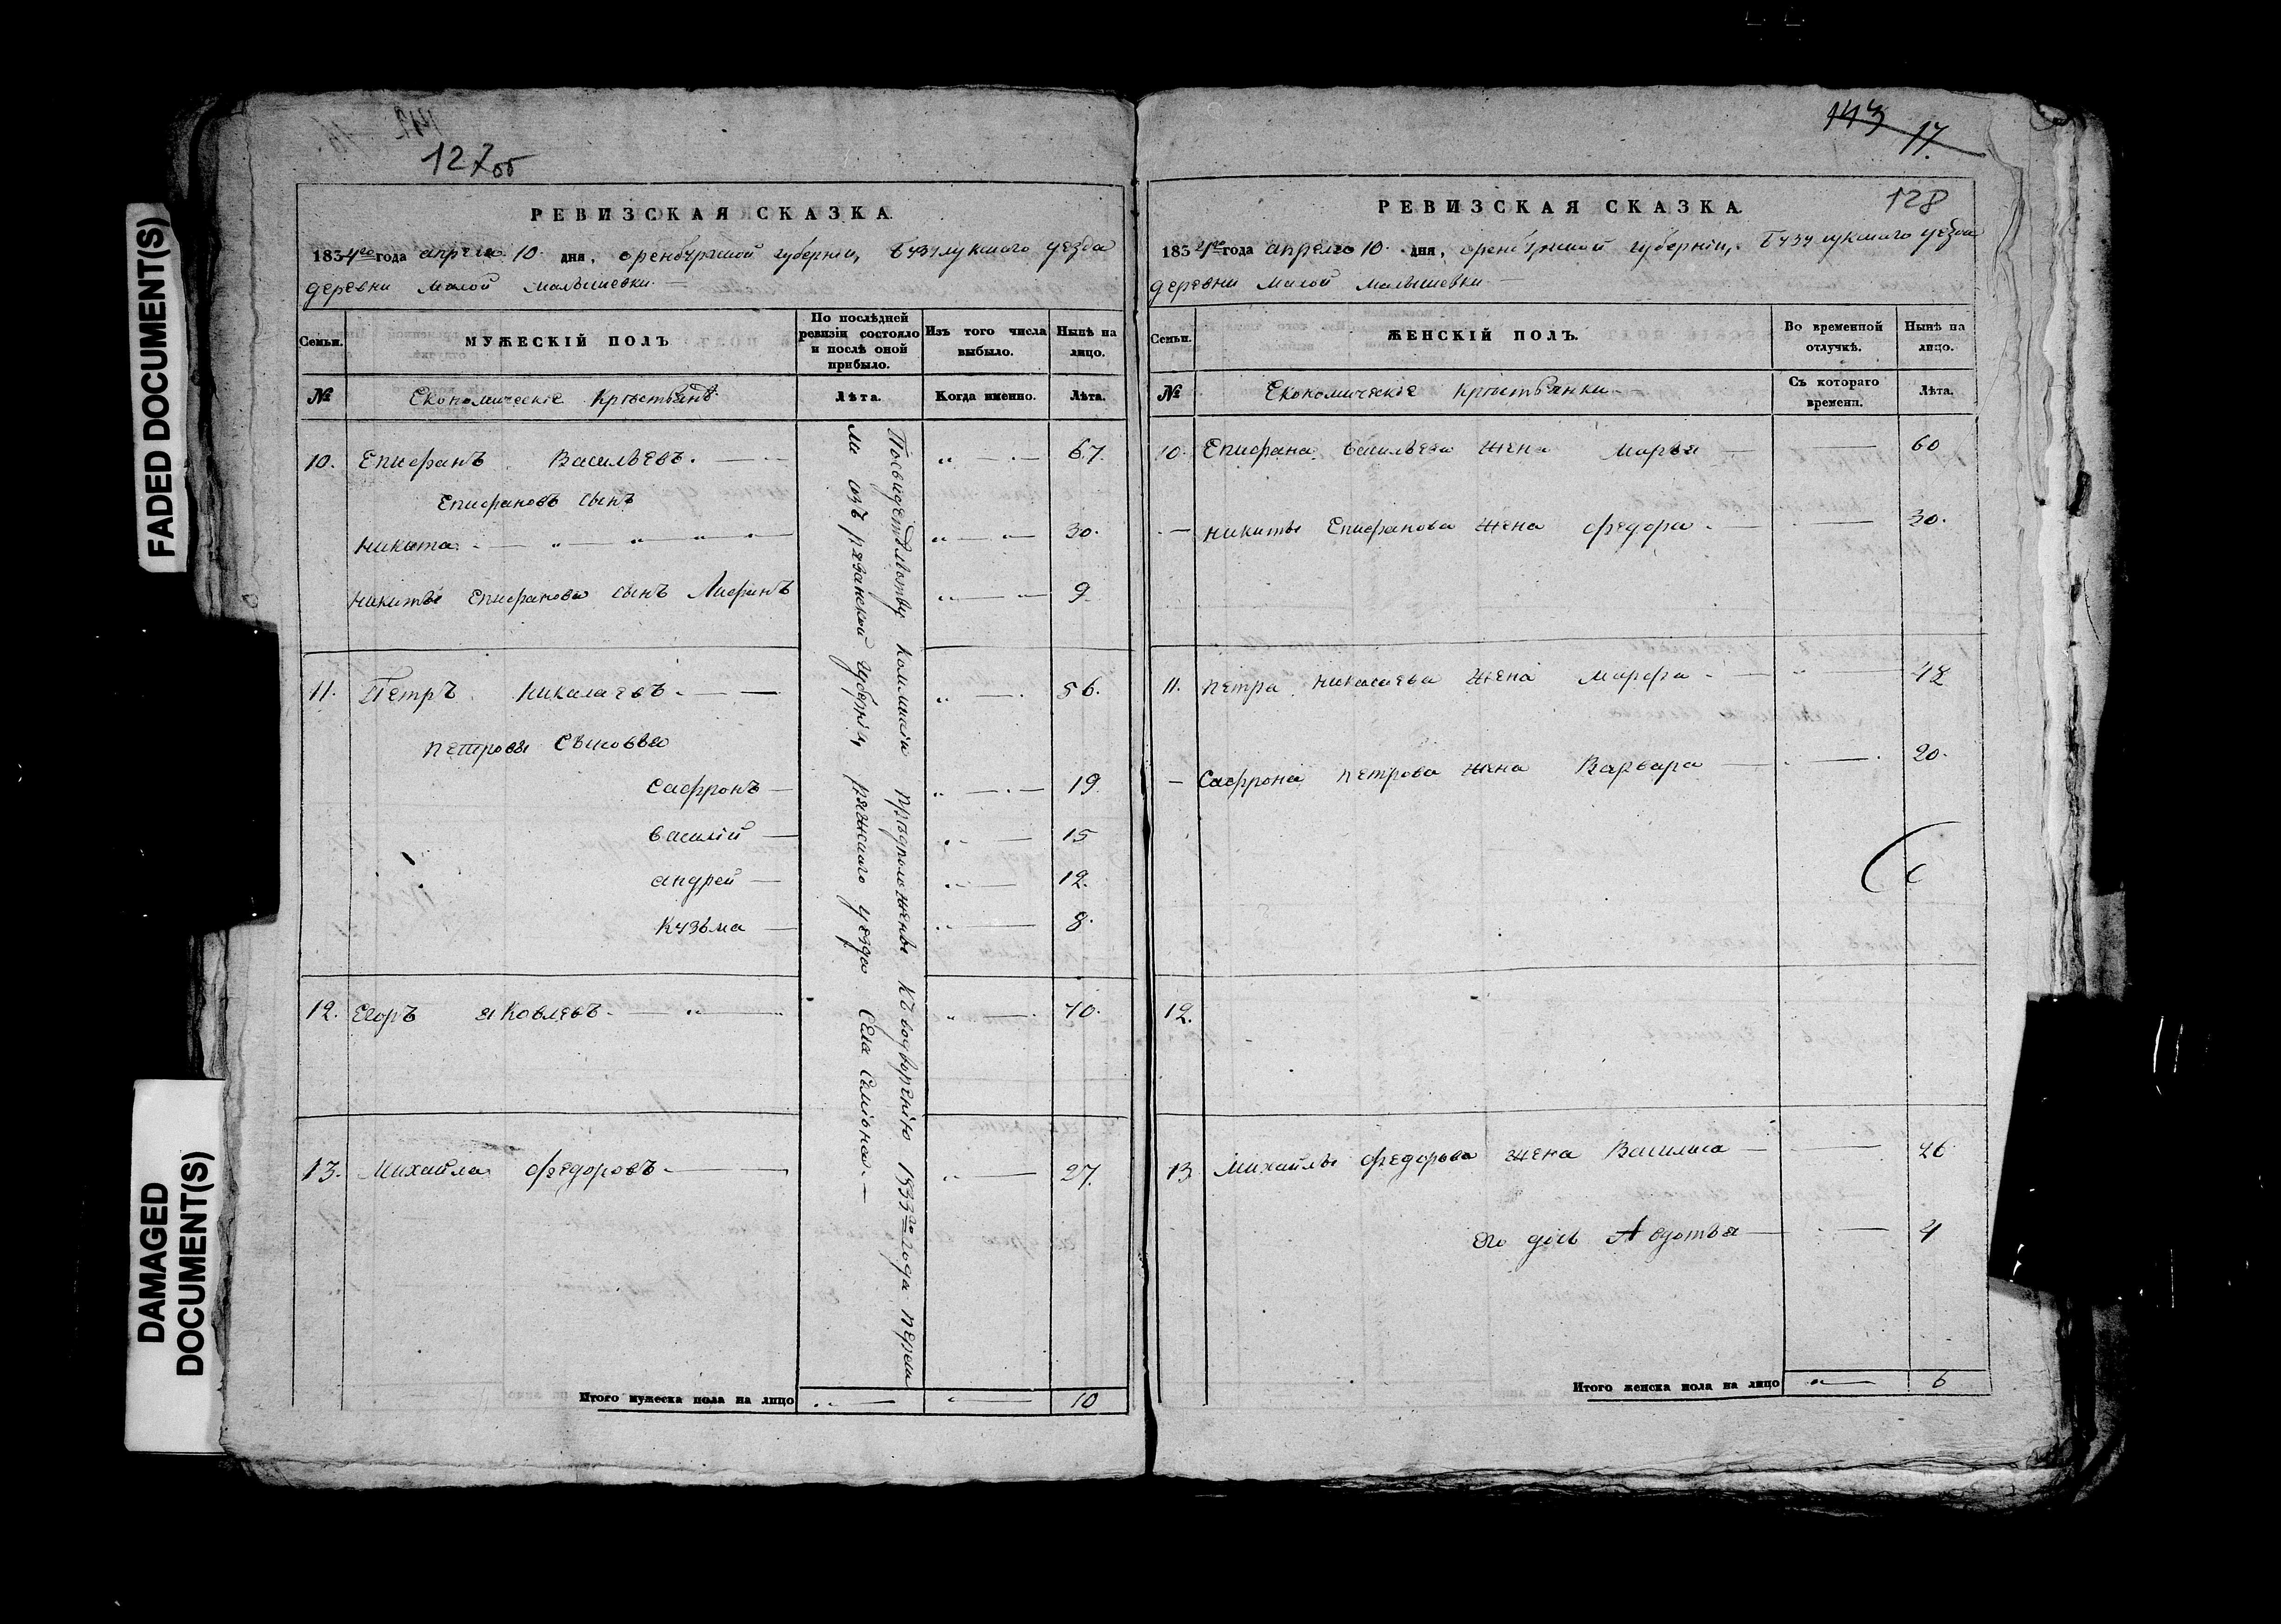 FADED DOCUMENT(S)
DAMAGED DOCUMENT(S)
127об
РЕВИЗСКАЯ СКАЗКА.
1834го года апреля 10 дня, оренбургской губернии, бузулукского уезда
деревни малой малышевки
Семьи. МУЖЕСКІЙ ПОЛЪ По послѣдней ревизіи состояло и послѣ оной прибыло. Изъ того числа выбыло. Нынѣ на лицо.
№ Економическіе Крестьянѣ Лѣта. Когда именно. Лѣта.
10. Епифанъ Васильевъ. 67.
Епифановъ сынъ
Никита 30.
Никиты Епифанова сынъ 9
11. Петръ Николаевъ 56.
Петровы сыновья
Сафронъ 19
василій 15
андрей 12.
Кузьма 8.
12. Егоръ яковлевъ 40.
13. Михайла федоровъ 27.
По свидетельству Коммисіи предположены Къ водворению 1833го года переш
ли изъ резанской губерніи, ряжскаго уезда Села
Итого мужеска пола на лицо 10
143 17.
128
РЕВИЗСКАЯ СКАЗКА.
1834го года апреля 10 дня, оренбургской губерніи, Бузулукского уезда
деревни малой малышевки
Семьи. ЖЕНСКІЙ ПОЛЪ. Во временной отлучкѣ. Нынѣ на лицо.
№ Економическіе Крестьянки Съ котораго времени. Лѣта.
10. Епифана васильева жена марья 60
Никиты Епифанова жена федора 30.
11. Петра николаева жена марфа 47
Сафрона петрова жена Варвара 20.
12.
13 Михайлы федорова жена Василиса 26
его дочь Авдотья 4
Итого женска пола на лицо 6